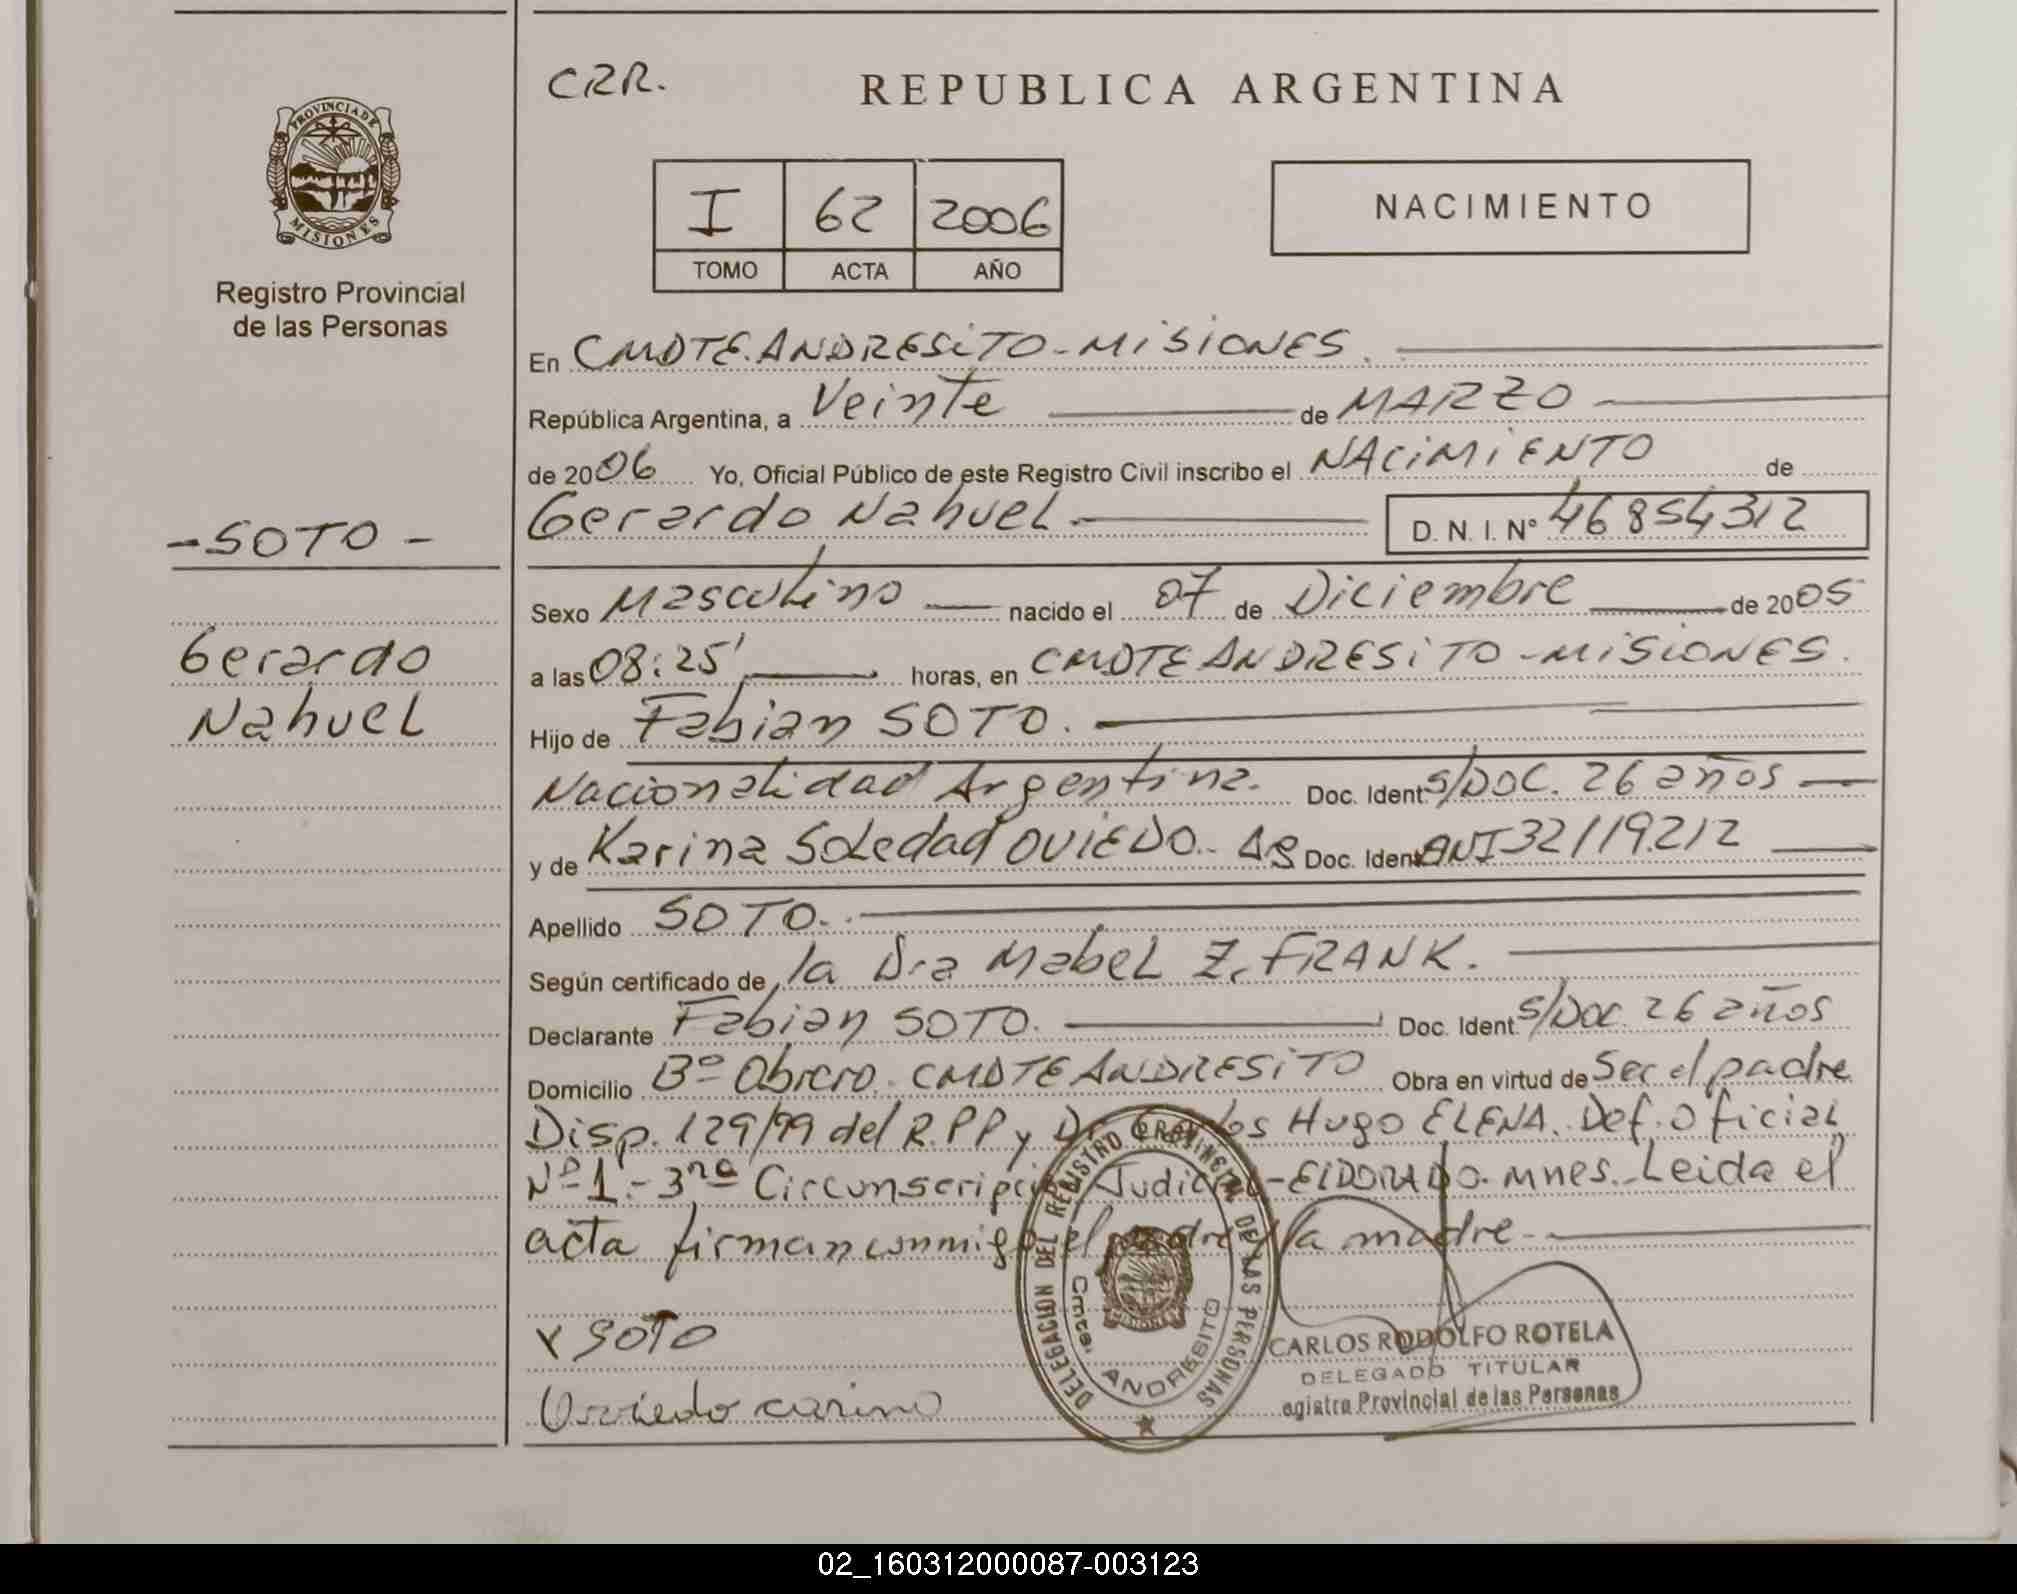 CRR.
REPUBLICA ARGENTINA
PROVINCIA DE
MISIONES
Registro Provincial
de las Personas
I 62 2006
TOMO ACTA AÑO
NACIMIENTO
En CMDTE. ANDRESiTO - MiSiONES.
República Argentina, a Veinte de MARZO
de 2006 Yo, Oficial Público de este Registro Civil inscribo el NACiMiENTO de
- SOTO -
Gerardo Nahuel
Gerardo Nahuel. D. N. I. Nº 46854312
Sexo Masculino nacido el 07 de Diciembre de 2005
a las 08:25' horas, en CMDTE ANDRESiTO - MiSiONES.
Hijo de Fabian SOTO.
Nacionalidad Argentina. Doc. Ident. S/DOC. 26 años
y de Karina Soledad OViEDO. Doc. Ident. DNI 32119212
Apellido SOTO.
Según certificado de la Dra Mabel Z. FRANK.
Declarante Fabian SOTO. Doc. Ident. S/DOC 26 años
Domicilio Bº Obrero. CMDTE ANDRESiTO Obra en virtud de Ser el padre
Disp. 129/99 del R.P.P y Dr Carlos Hugo ELENA. Def. Oficial
Nº 1 - 3ra Circunscripción Judicial - ELDORADO. Mnes. Leida el
acta firman conmigo el padre y la madre.
x SOTO
Oviedo carina
DELEGACION DEL REGISTRO PROVINCIAL DE LAS PERSONAS
Cmte. ANDRESITO
MISIONES
CARLOS RODOLFO ROTELA
DELEGADO TITULAR
egistro Provincial de las Personas
02_160312000087-003123